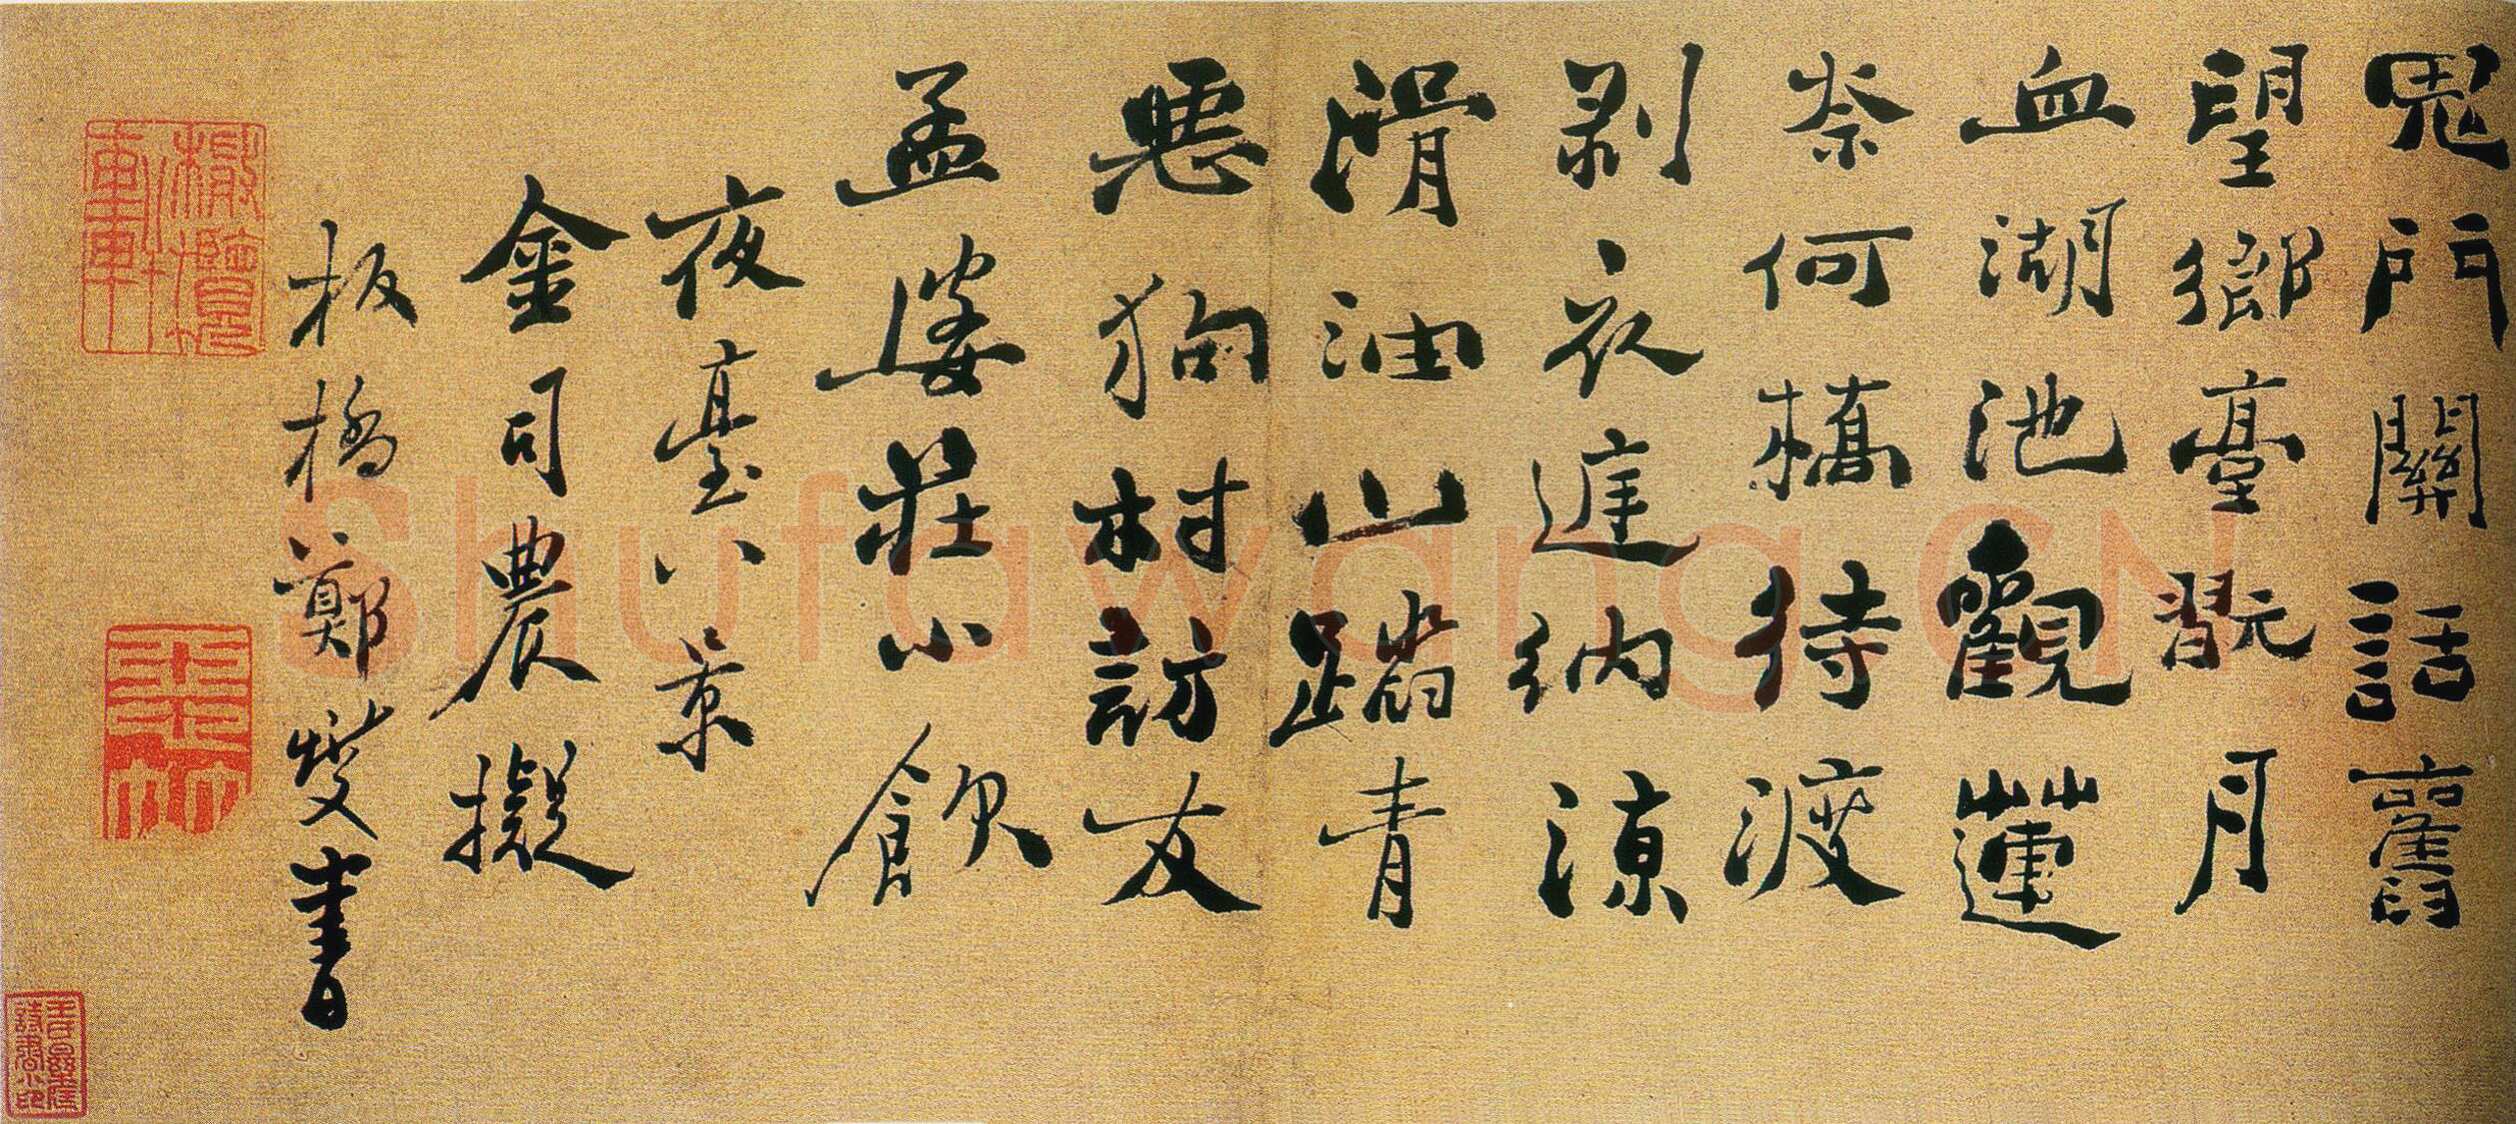 鬼門關話舊
望鄉臺翫月
血湖池觀蓮
奈何橋待渡
剥衣庭納涼
滑油山踏青
惡狗村訪友
孟婆莊小飲
夜臺八景
金司農擬
板橋鄭燮書
橄欖軒
Shufawang.CN